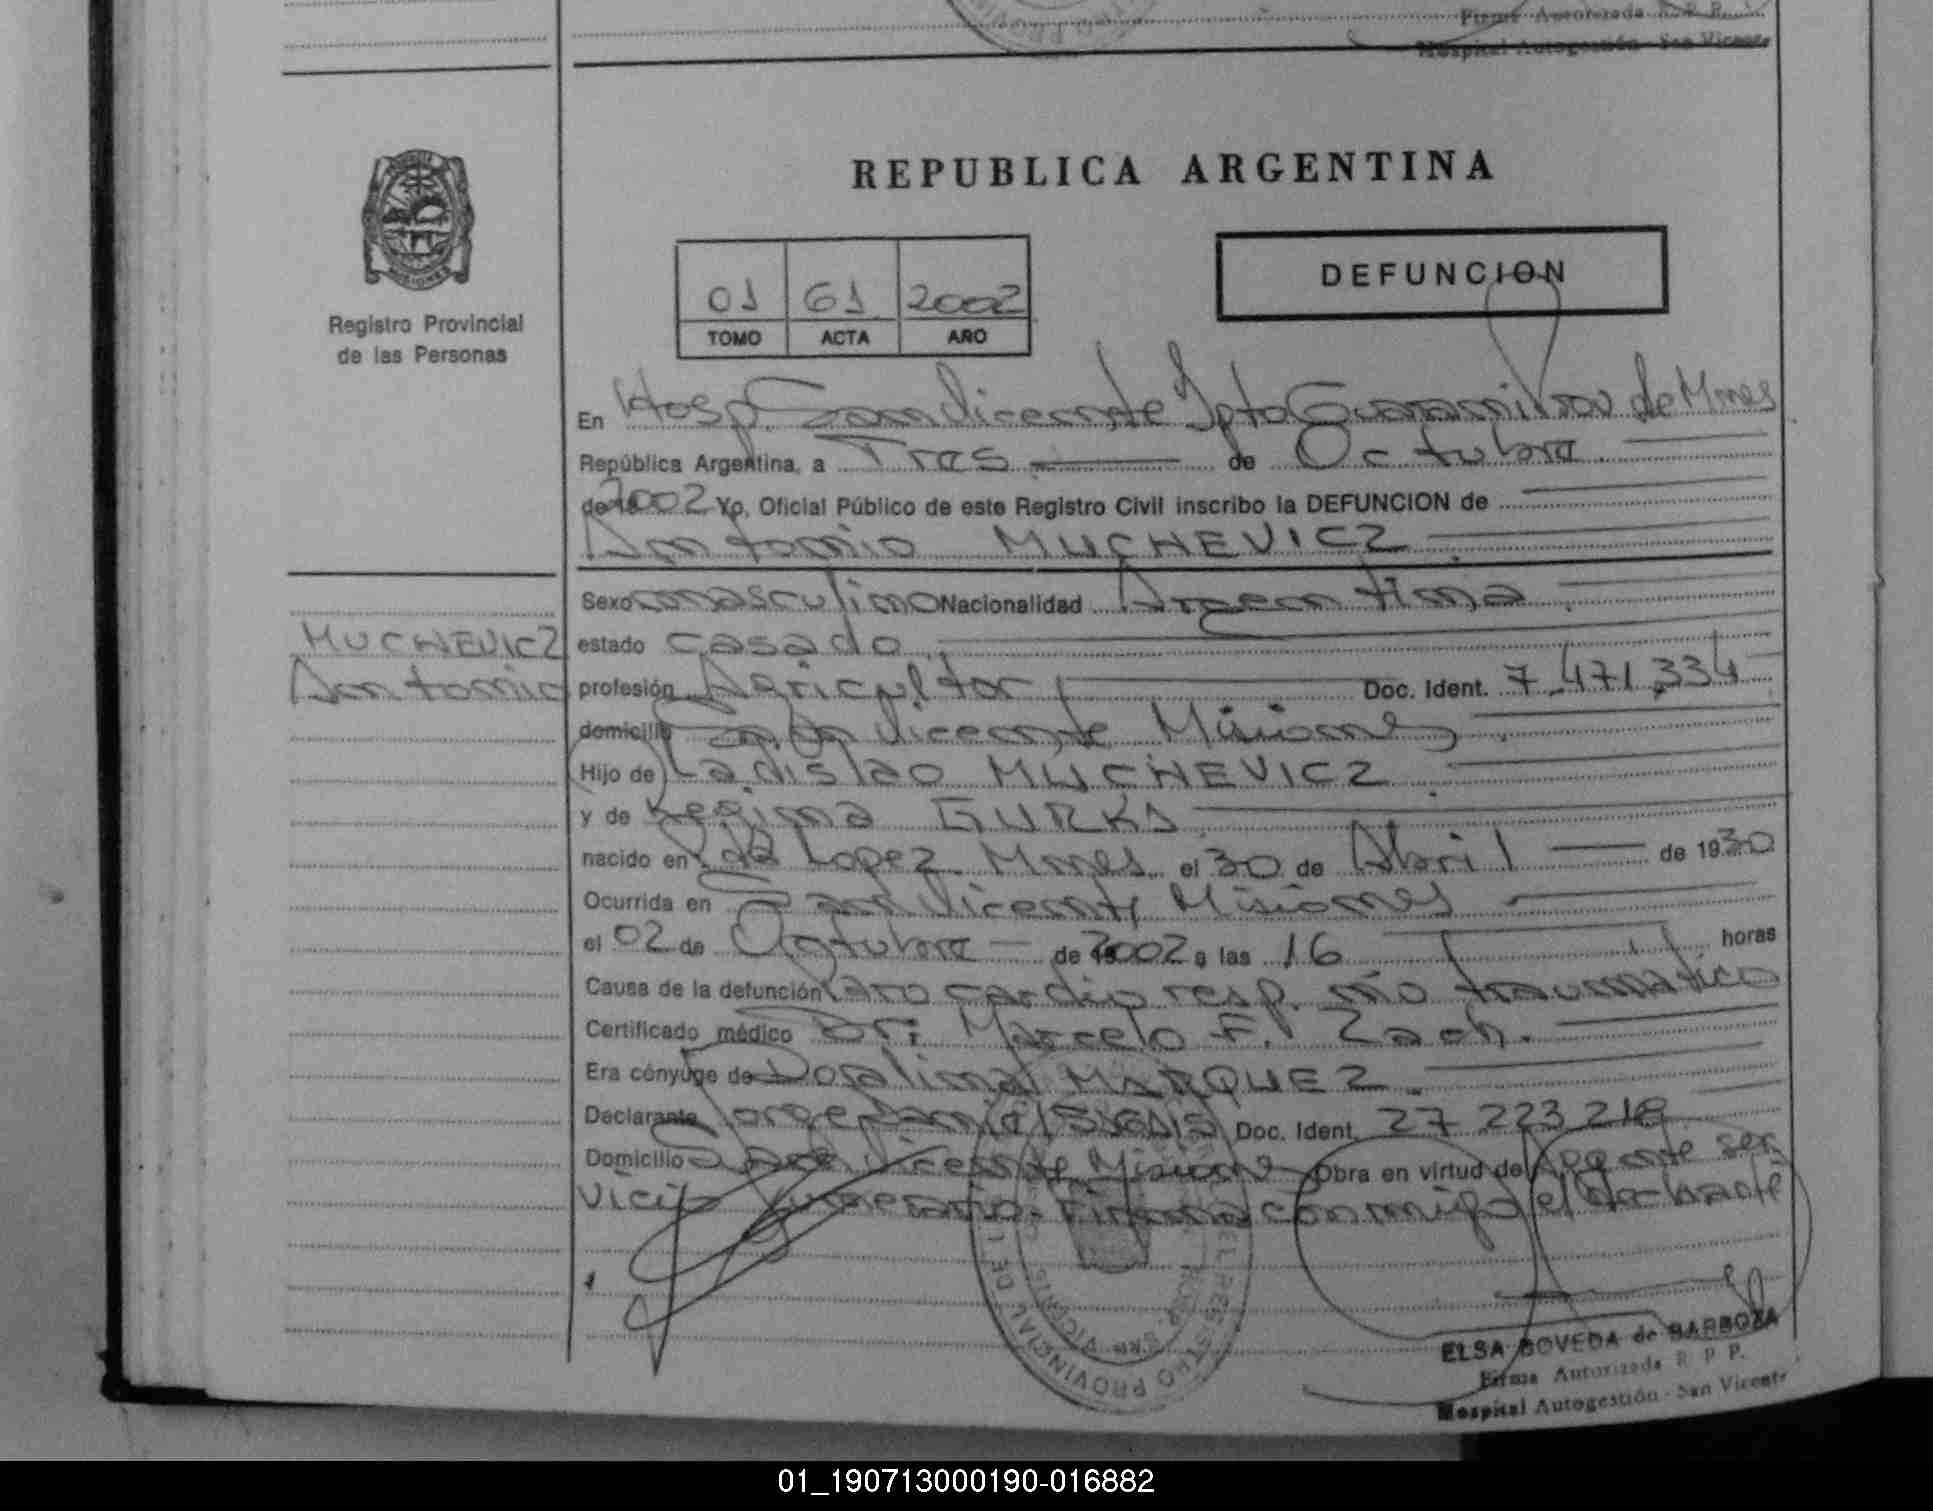 Firma Autorizada R. P. P.
Hospital Autogestión - San Vicente
REPUBLICA ARGENTINA
Registro Provincial
de las Personas
01 61 2002
TOMO ACTA AÑO
DEFUNCION
En Hosp. San Vicente Dpto Guaraní Prov de Mnes
República Argentina, a Tres de Octubre
de 2002 Yo, Oficial Público de este Registro Civil inscribo la DEFUNCION de
Antonio MUCHEVICZ
Sexo masculino Nacionalidad Argentina
MUCHEVICZ
Antonio
estado casado
profesión Agricultor Doc. Ident. 7.471.334
domicilio San Vicente Misiones
Hijo de Ladislao MUCHEVICZ
y de Regina GURKS
nacido en Pdo Lopez Mnes. el 30 de Abril de 1930
Ocurrida en San Vicente Misiones
el 02 de Octubre de 2002 a las 16 horas
Causa de la defunción Paro cardio resp. no traumatico
Certificado médico Dr. Marcelo F. Zach.
Era cónyuge de Doralina MARQUEZ
Declarante Jorge Daniel Doc. Ident. 27 223 218
Domicilio San Vicente Misiones Obra en virtud de Agente ser
vicio funerario. Firma conmigo el
REGISTRO PROVINCIAL DE
HOSP. SAN VICENTE
ELSA BOVEDA de BARBOZA
Firma Autorizada R P P.
Hospital Autogestión - San Vicente
01_190713000190-016882